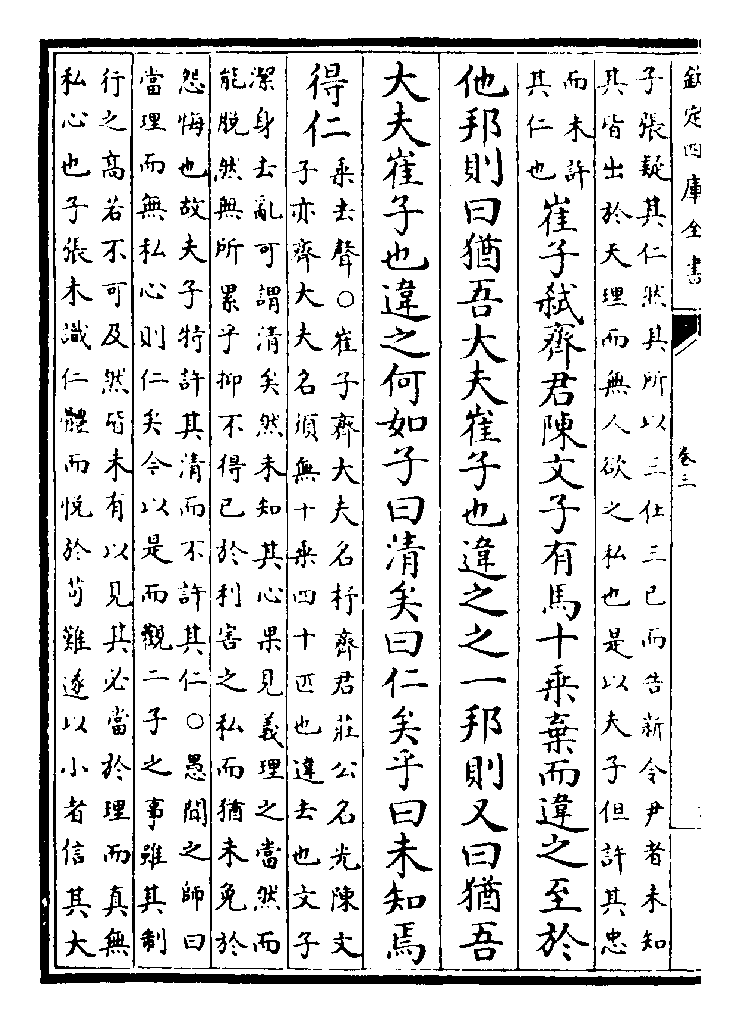 欽定四庫全書
卷三
子張疑其仁然其所以三仕三已而告新令尹者未知
其皆出於天理而無人欲之私也是以夫子但許其忠
而未許
其仁也
崔子弑齊君陳文子有馬十乘棄而違之至於
他邦則曰猶吾大夫崔子也違之之一邦則又曰猶吾
大夫崔子也違之何如子曰清矣曰仁矣乎曰未知焉
得仁
乘去聲○崔子齊大夫名杼齊君莊公名光陳文
子亦齊大夫名須無十乘四十匹也違去也文子
潔身去亂可謂清矣然未知其心果見義理之當然而
能脱然無所累乎抑不得已於利害之私而猶未免於
怨悔也故夫子特許其清而不許其仁○愚聞之師曰
當理而無私心則仁矣今以是而觀二子之事雖其制
行之高若不可及然皆未有以見其必當於理而真無
私心也子張未識仁體而悅於苟難遂以小者信其大